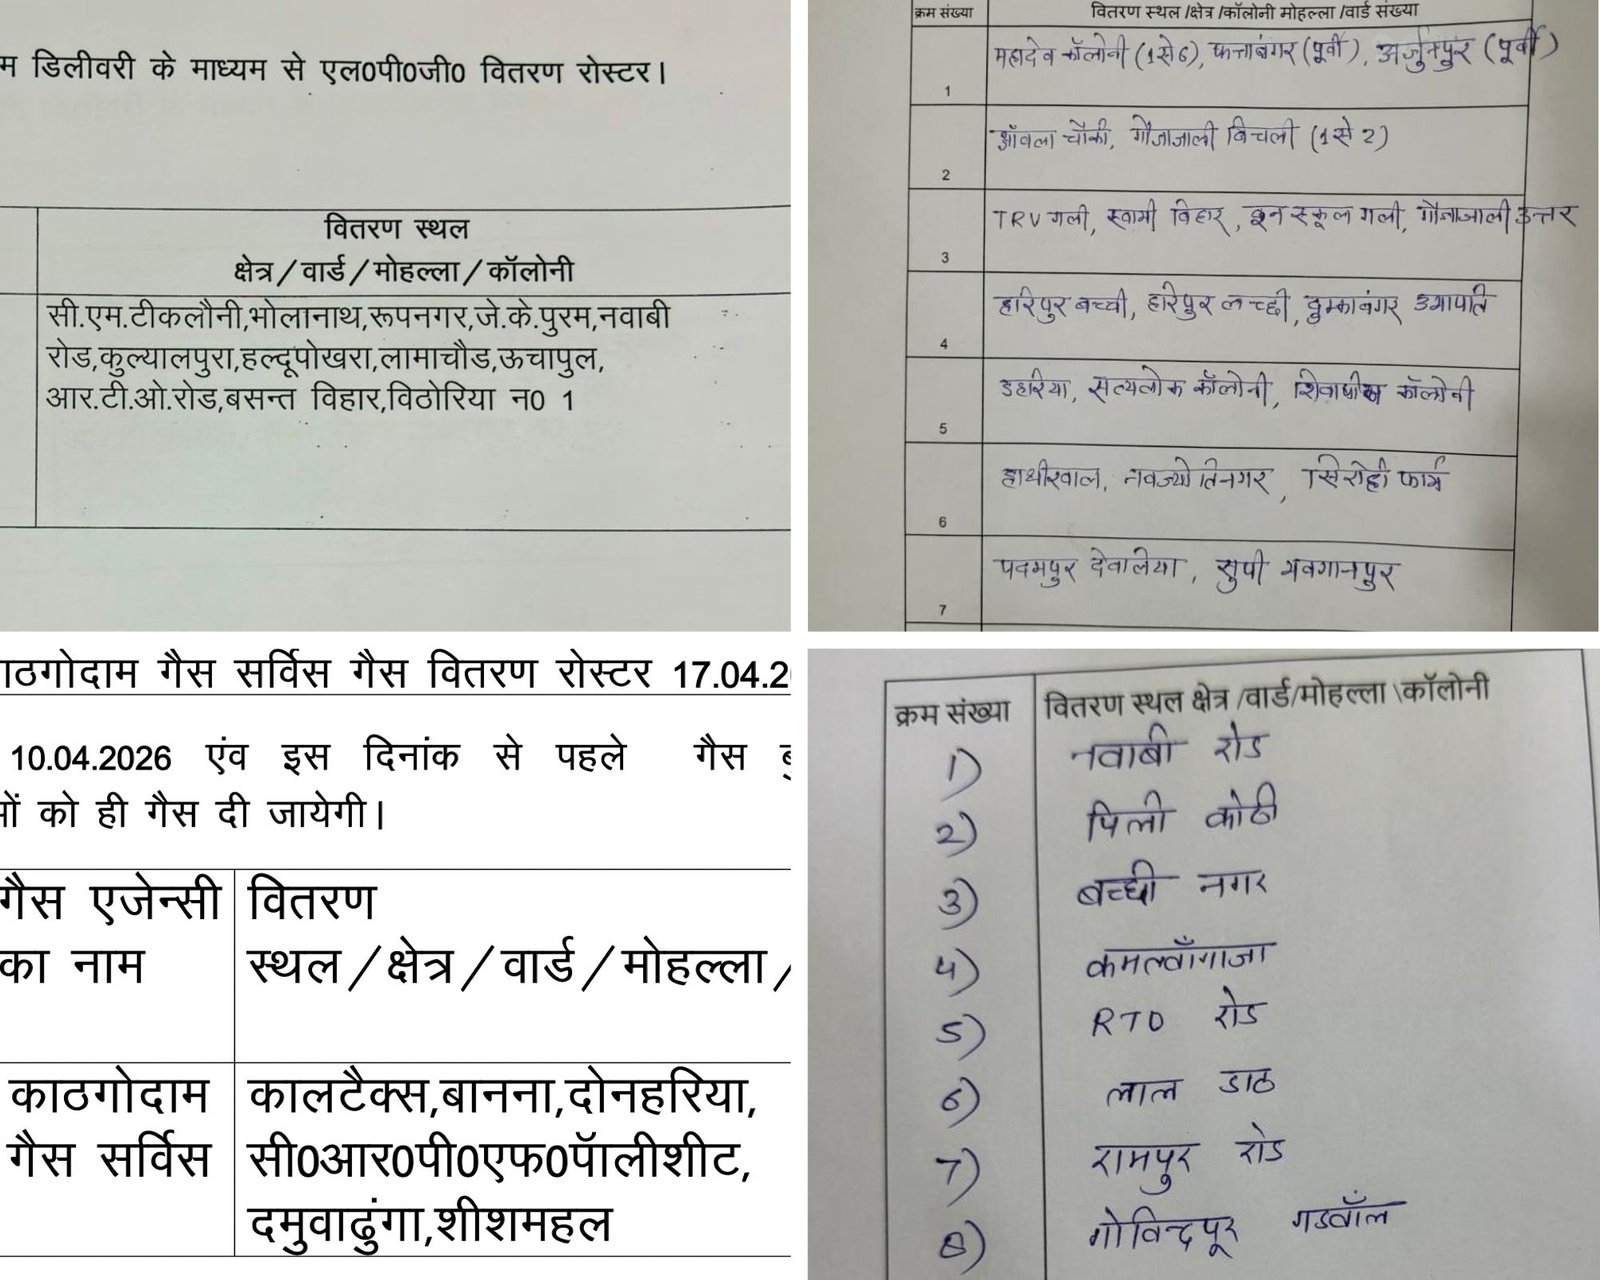 म डिलीवरी के माध्यम से एल0पी0जी0 वितरण रोस्टर।
वितरण स्थल
क्षेत्र/वार्ड/मोहल्ला/कॉलोनी
सी.एम.टीकलौनी,भोलानाथ,रूपनगर,जे.के.पुरम,नवाबी
रोड,कुल्यालपुरा,हल्दूपोखरा,लामाचौड,ऊचापुल,
आर.टी.ओ.रोड,बसन्त विहार,विठोरिया न0 1
क्रम संख्या वितरण स्थल /क्षेत्र /कॉलोनी मोहल्ला /वार्ड संख्या
1 महादेव कॉलोनी (1से6), फत्ताबंगर (पूर्वी), अर्जुनपुर (पूर्वी)
2 आँवला चौकी, गौजाजाली बिचली (1से 2)
3 TRV गली, स्वामी विहार, स्कूल गली, गौजाजाली उत्तर
4 हरिपुर बच्ची, हरिपुर लच्छी, दुम्काबंगर उमापति
5 डहरिया, सत्यलोक कॉलोनी, कॉलोनी
6 हाथीखाल, नवज्योतिनगर, सिरोही फार्म
7 पदमपुर देवलिया, सुपी भवगानपुर
ाठगोदाम गैस सर्विस गैस वितरण रोस्टर 17.04.2
10.04.2026 एंव इस दिनांक से पहले गैस बु
ओं को ही गैस दी जायेगी।
गैस एजेन्सी वितरण
का नाम स्थल/क्षेत्र/वार्ड/मोहल्ला/
काठगोदाम कालटैक्स,बानना,दोनहरिया,
गैस सर्विस सी0आर0पी0एफ0पॅालीशीट,
दमुवाढुंगा,शीशमहल
क्रम संख्या वितरण स्थल क्षेत्र /वार्ड/मोहल्ला \कॉलोनी
1) नवाबी रोड
2) पिली कोठी
3) बच्ची नगर
4) कमलवाँगाजा
5) RTO रोड
6) लाल डाठ
7) रामपुर रोड
8) गोविन्दपूर गडवाँल